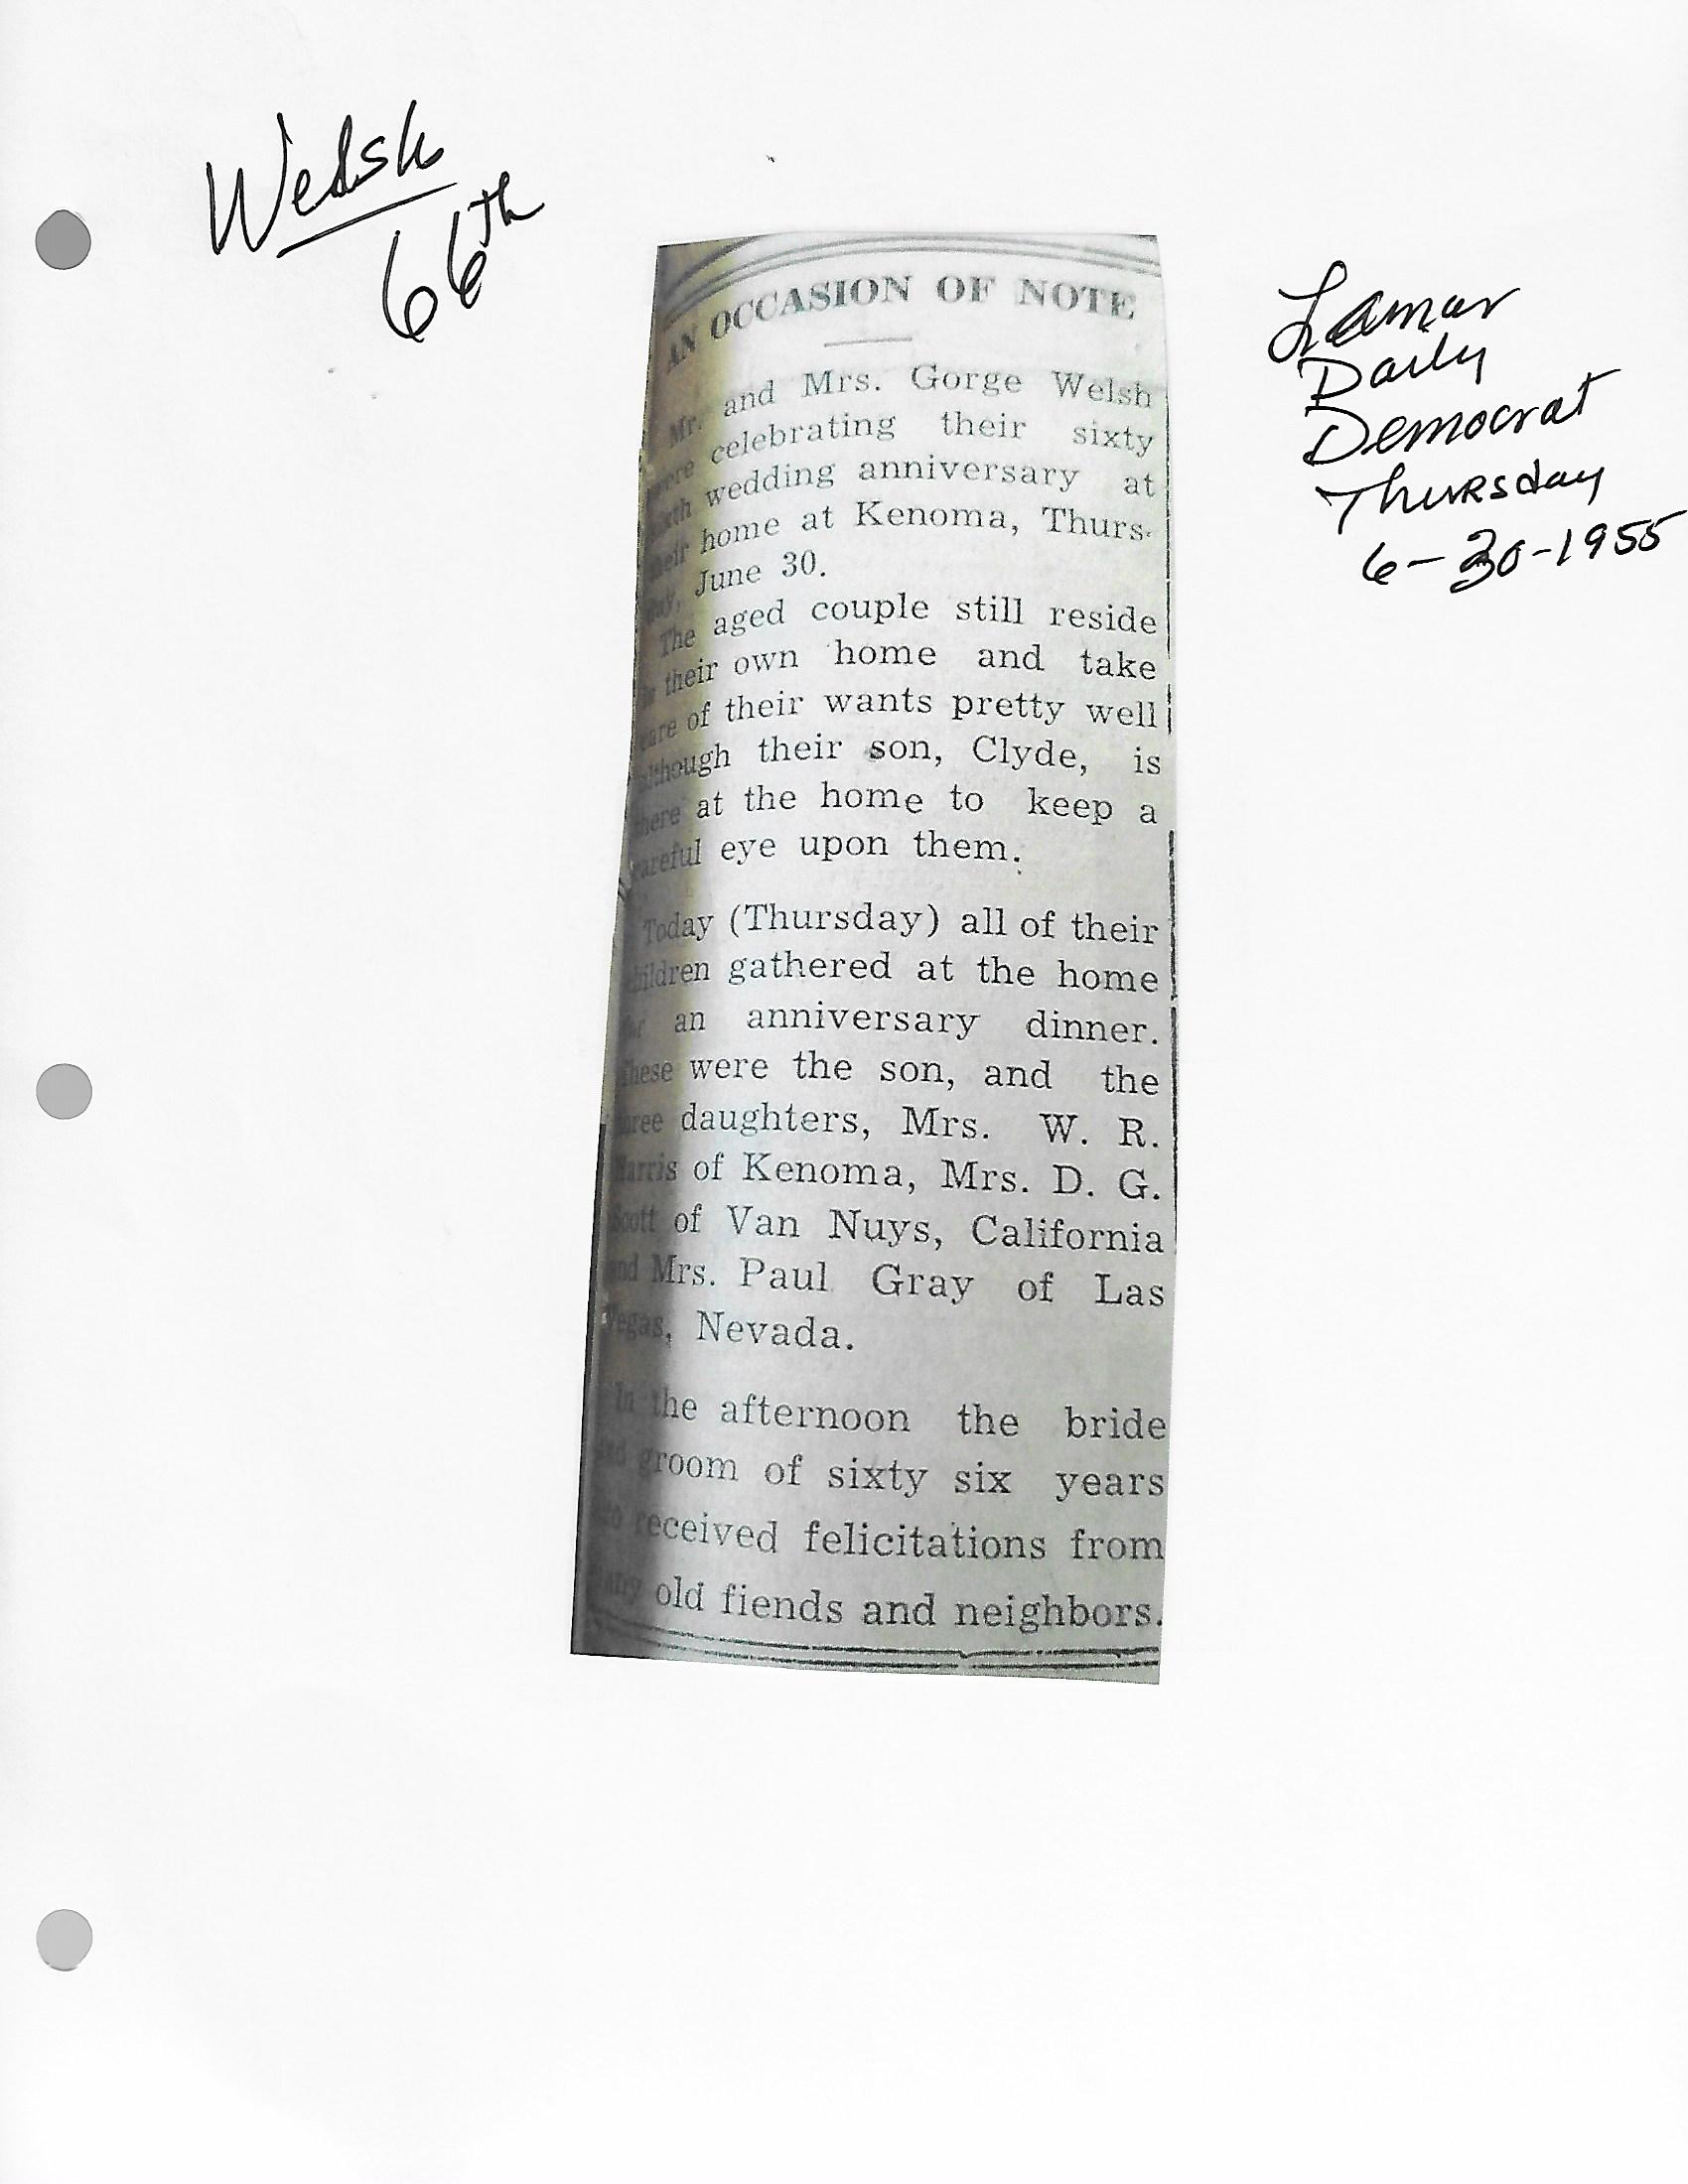 Welsh
66th
Lamar
Daily
Democrat
Thursday
6-30-1955
AN OCCASION OF NOTE
Mr. and Mrs. Gorge Welsh
were celebrating their sixty
sixth wedding anniversary at
their home at Kenoma, Thurs-
day, June 30.
The aged couple still reside
in their own home and take
care of their wants pretty well
although their son, Clyde, is
there at the home to keep a
careful eye upon them.
Today (Thursday) all of their
children gathered at the home
for an anniversary dinner.
These were the son, and the
three daughters, Mrs. W. R.
Harris of Kenoma, Mrs. D. G.
Scott of Van Nuys, California
and Mrs. Paul Gray of Las
Vegas, Nevada.
In the afternoon the bride
and groom of sixty six years
received felicitations from
many old fiends and neighbors.